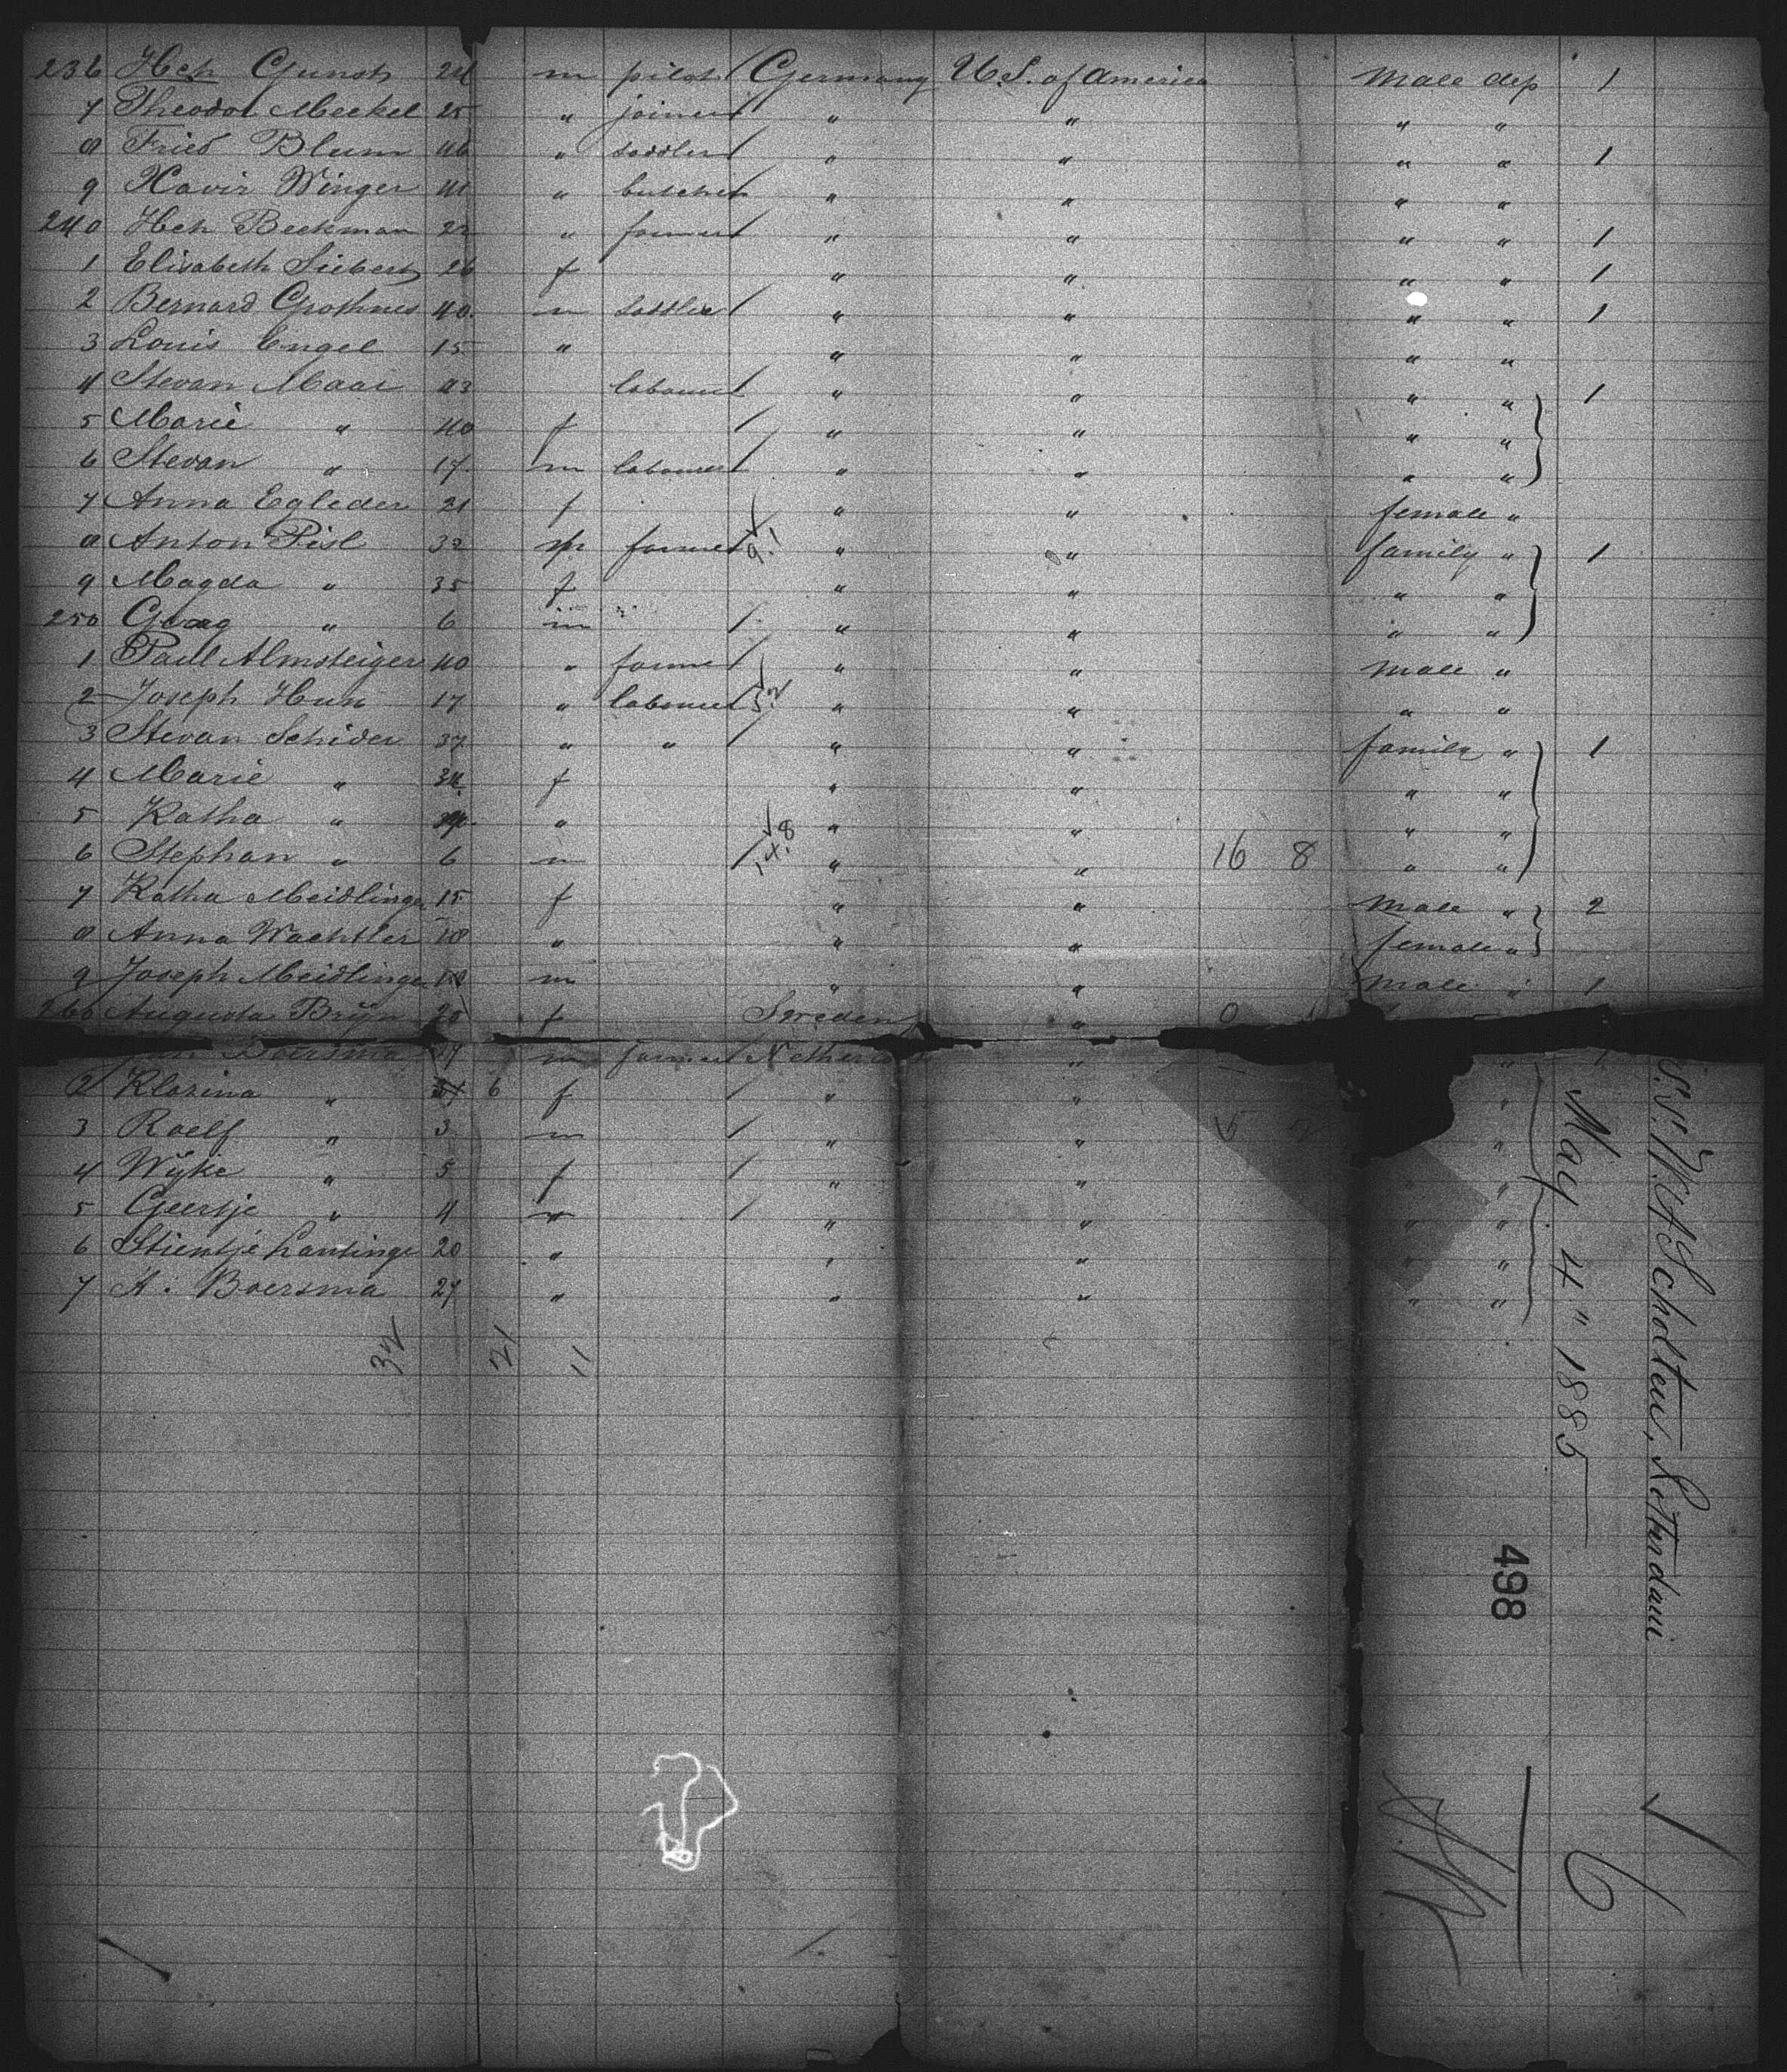 236 Hch Gunst 24 m pilot Germany U.S. of America Male dep 1
7 Theodor Meckel 25 " joiner " " " "
8 Fried Blum 46 " saddler " " " " 1
9 Xavir Winger 41 " butcher " " " "
240 Hch Beekman 22 " farmer " " " " 1
1 Elisabeth Siebert 26 f " " " " 1
2 Bernard Grothues 40 m saddler " " " " 1
3 Louis Engel 15 " " " " "
4 Stevan Maar 43 labourer " " " " 1
5 Marie " 40 f " " " "
6 Stevan " 17 m labourer " " " "
7 Anna Egleder 21 f " " female "
8 Anton Pisl 32 m farmer 9.1 " " family " 1
9 Magda " 35 f " " " "
250 Georg " 6 m " " " "
1 Paul Almsteiger 40 " farmer " " male "
2 Joseph Hun 17 " labourer 5.2 " " " "
3 Stevan Schider 37 " " " " family " 1
4 Marie " 34 f " " " "
5 Katha " " " " " "
6 Stephan " 6 m 14.8 " " 16 8 " "
7 Katha Meidlinger 15 f " " Male " 2
8 Anna Wachtler 18 " " " female "
9 Joseph Meidlinger m " " Male " 1
260 Augusta Brijn 20 f Sweden " 0
Boersma m farmer " "
2 Klasina " 6 f " " "
3 Roelf " 3 m " " "
4 Wijke " 5 f " " "
5 Geertje " 4 " " " " "
6 Stientje Lantinga 20 " " " " "
7 A. Boersma 27 " " " " "
12 11
S.S. W. A. Scholten, Rotterdam
May 4 " 1885
498
6